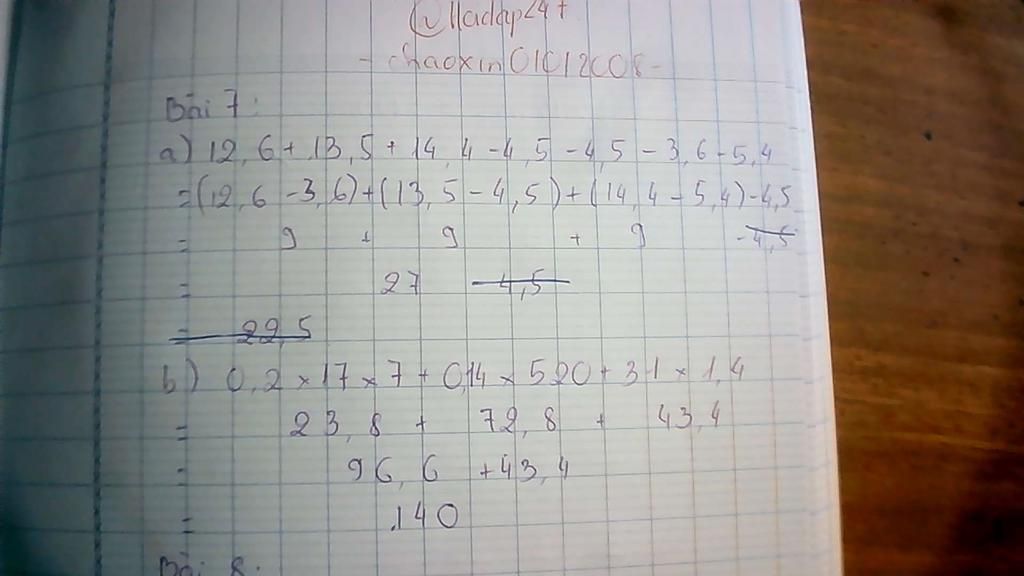 -chaoxin01012008-
Bài 7:
a) 12,6 + 13,5 + 14,4 - 4,5 - 4,5 - 3,6 - 5,4
= (12,6 - 3,6) + (13,5 - 4,5) + (14,4 - 5,4) - 4,5
= 9 + 9 + 9 - 4,5
= 27 - 4,5
= 22,5
b) 0,2 × 17 × 7 + 0,14 × 520 + 31 × 1,4
= 23,8 + 72,8 + 43,4
= 96,6 + 43,4
= 140
Bài 8: